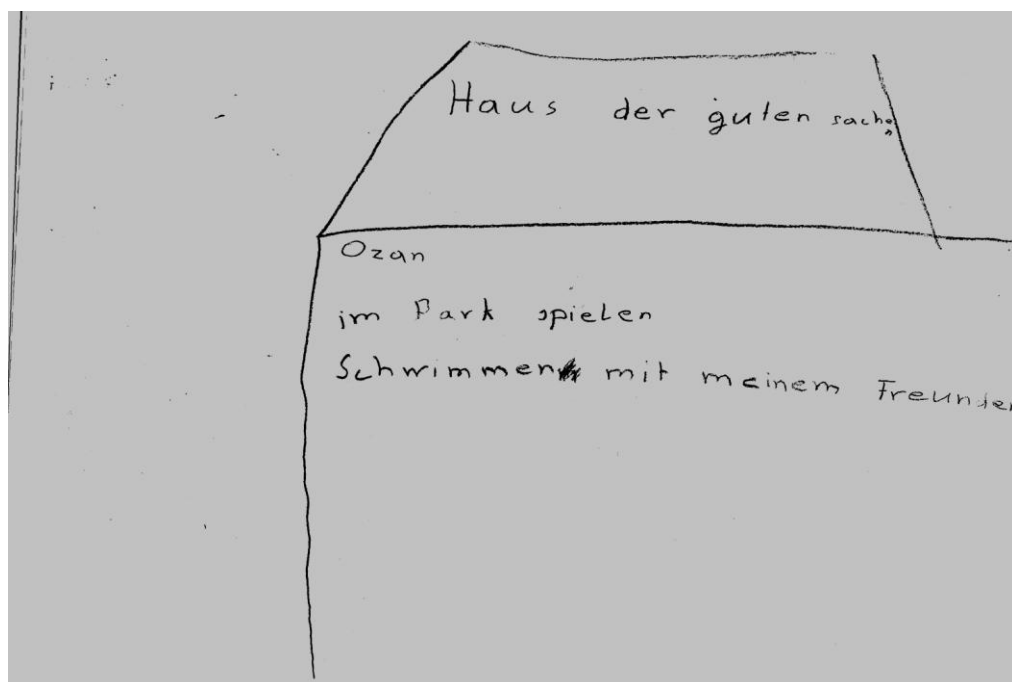 Haus der guten sachen
Ozan
im Park spielen
Schwimmen mit meinem Freunden